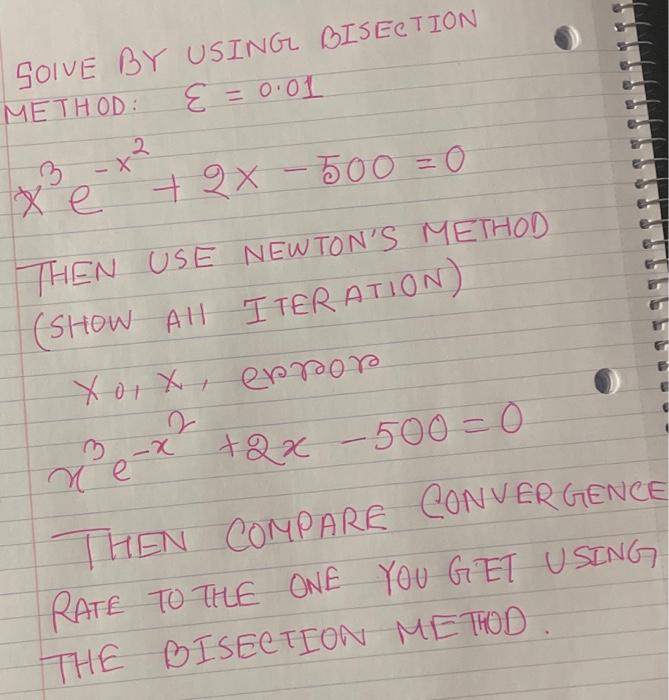 SOIVE BY USING BISECTION
METHOD: ε = 0.01
x³e^{-x²} + 2x - 500 = 0
THEN USE NEWTON'S METHOD
(SHOW All ITERATION)
x₀, x, error
x³e^{-x²} + 2x - 500 = 0
THEN COMPARE CONVERGENCE
RATE TO THE ONE YOU GET USING
THE BISECTION METHOD.